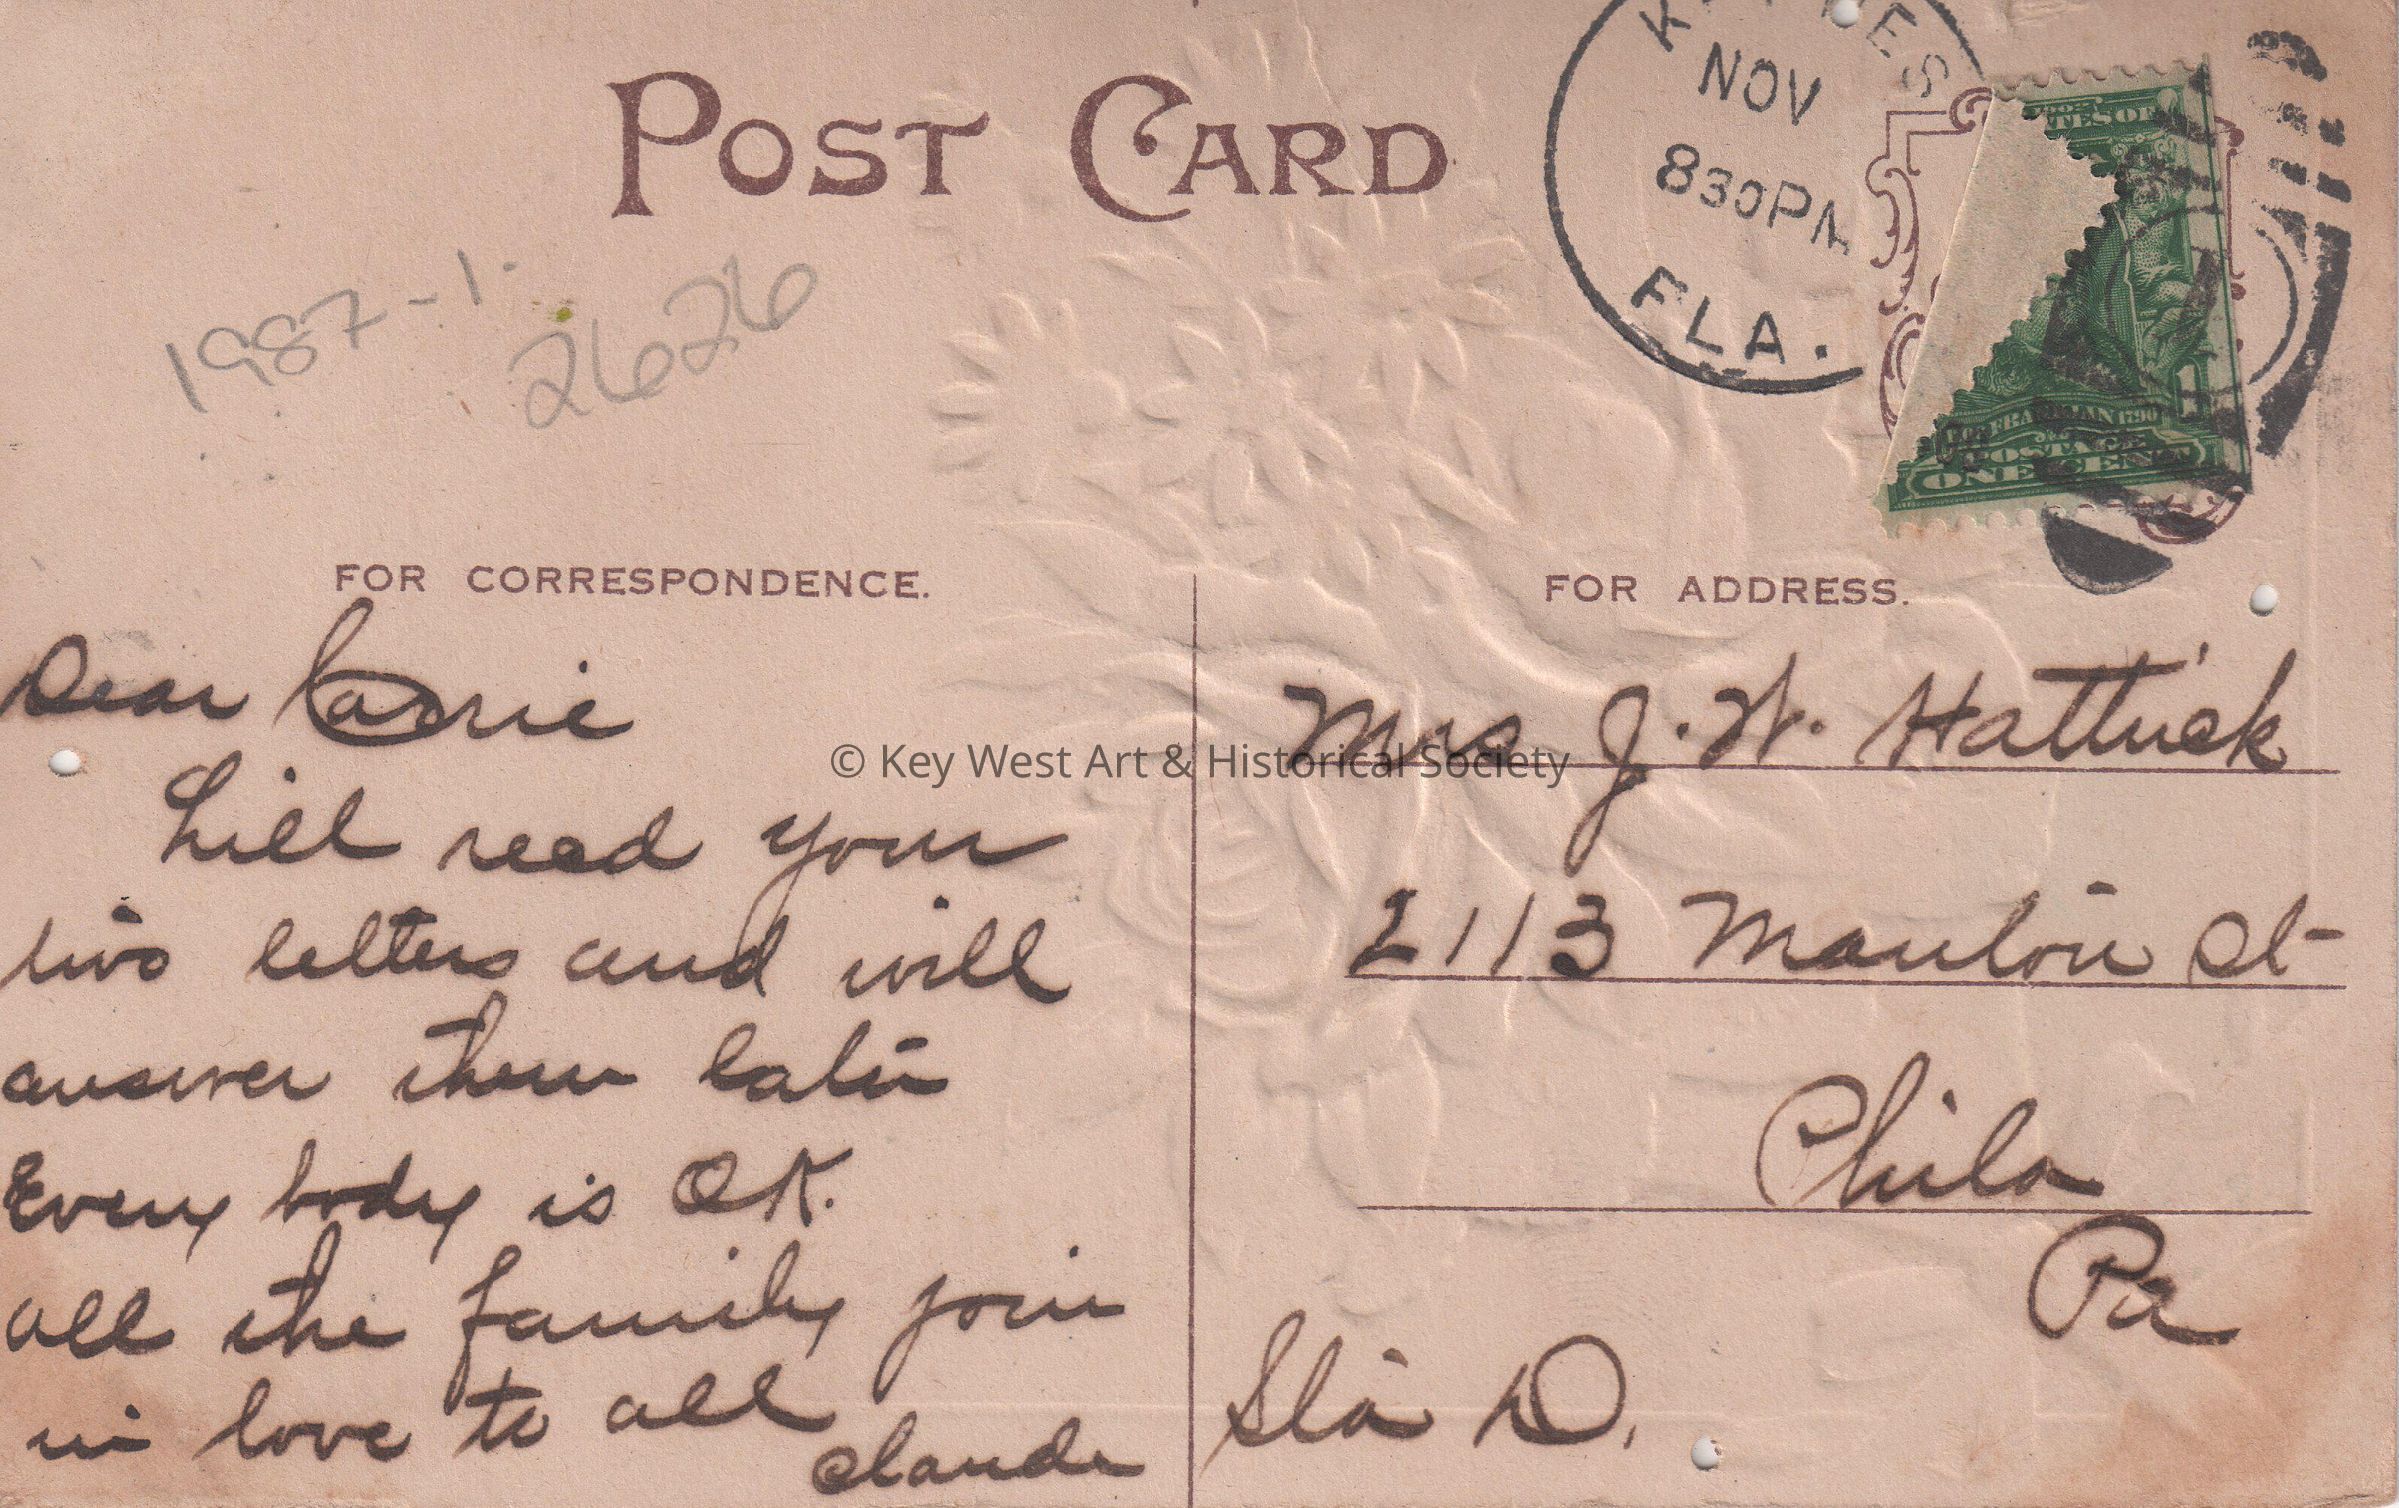 POST CARD
K NES
NOV
830PM
FLA.
TES OF
FRANKLIN 1790
POSTAGE
ONE CENT
1
1987-1.
2626
FOR CORRESPONDENCE.
FOR ADDRESS.
Dear Carrie
Lill recd your
two letters and will
answer them later
Every body is OK.
all the family join
in love to all
Claude
Mrs J. W. Hattrick
2113 St
Phila
Pa
Sta D.
© Key West Art & Historical Society